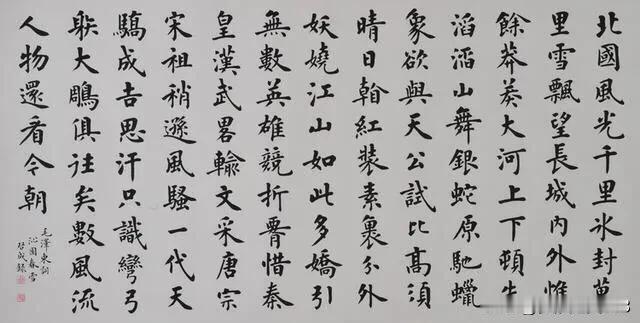 北國風光千里冰封萬
里雪飄望長城內外惟
餘莽莽大河上下頓失
滔滔山舞銀蛇原馳蠟
象欲與天公試比高須
晴日看紅裝素裹分外
妖嬈江山如此多嬌引
無數英雄競折腰惜秦
皇漢武畧輸文采唐宗
宋祖稍遜風騷一代天
驕成吉思汗只識彎弓
射大鵰俱往矣數風流
人物還看今朝
毛澤東詞
沁園春雪